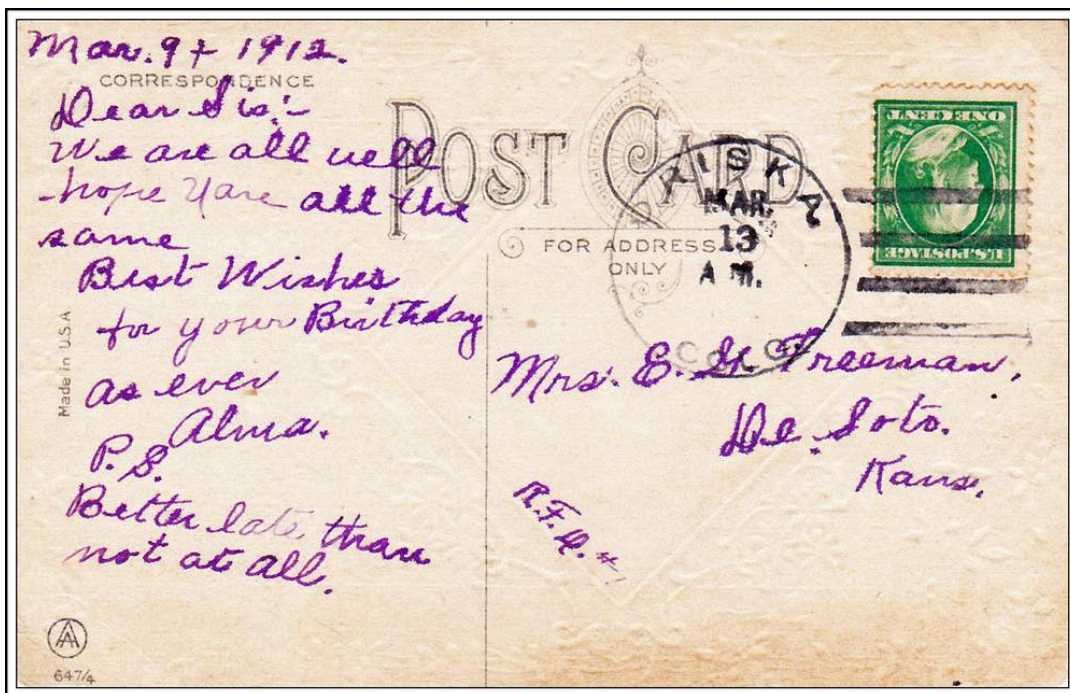 Mar. 9 + 1912.
CORRESPONDENCE
Dear Sis:-
We are all well
hope Yare all the
same
Best Wishes
for your Birthday
as ever
Alma.
P.S.
Better late than
not at all.
Made in U.S.A
AA
647/4
POST CARD
FOR ADDRESS
ONLY
ARISKA
MAR.
13
A M.
COLO.
U.S. POSTAGE
ONE CENT
Mrs. E. Freeman,
De. Soto.
Kans.
R.F.D. #1